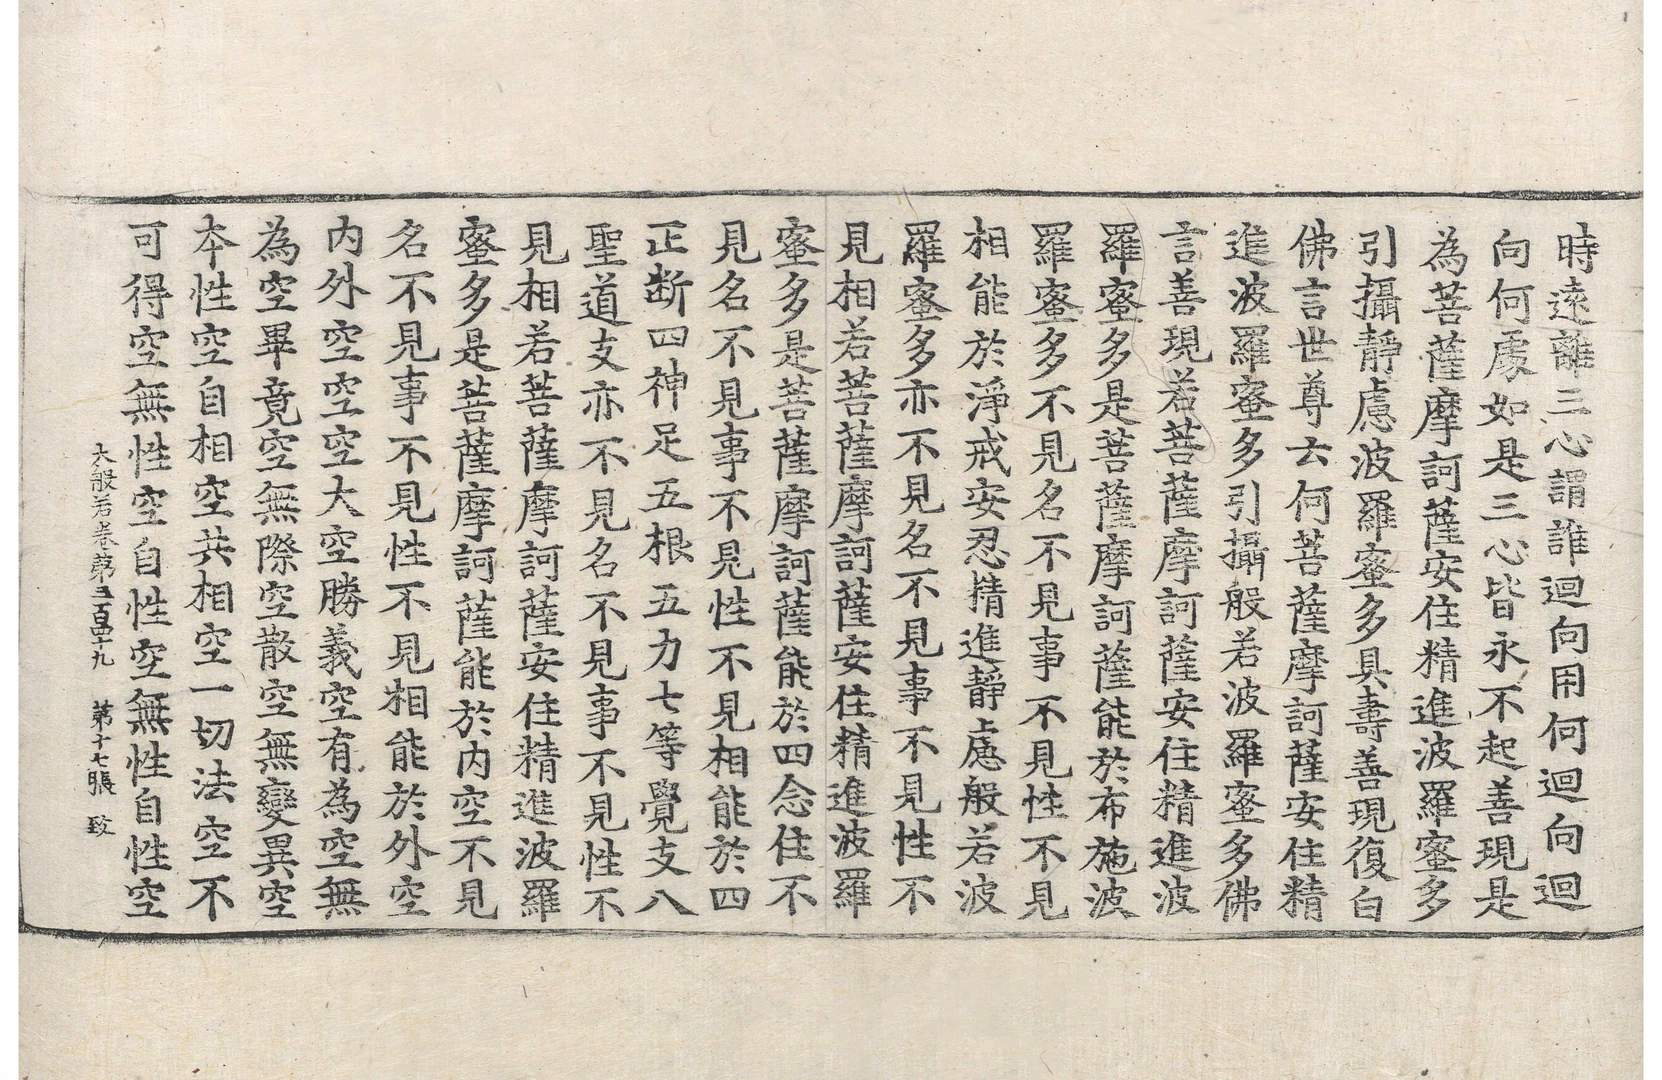 時遠離三心謂誰迴向用何迴向迴
向何處如是三心皆永不起善現是
為菩薩摩訶薩安住精進波羅蜜多
引攝靜慮波羅蜜多具壽善現復白
佛言世尊云何菩薩摩訶薩安住精
進波羅蜜多引攝般若波羅蜜多佛
言善現若菩薩摩訶薩安住精進波
羅蜜多是菩薩摩訶薩能於布施波
羅蜜多不見名不見事不見性不見
相能於淨戒安忍精進靜慮般若波
羅蜜多亦不見名不見事不見性不
見相若菩薩摩訶薩安住精進波羅
蜜多是菩薩摩訶薩能於四念住不
見名不見事不見性不見相能於四
正断四神足五根五力七等覺支八
聖道支亦不見名不見事不見性不
見相若菩薩摩訶薩安住精進波羅
蜜多是菩薩摩訶薩能於内空不見
名不見事不見性不見相能於外空
内外空空空大空勝義空有為空無
為空畢竟空無際空散空無變異空
本性空自相空共相空一切法空不
可得空無性空自性空無性自性空
大般若卷第三百四十九 第十七張 致